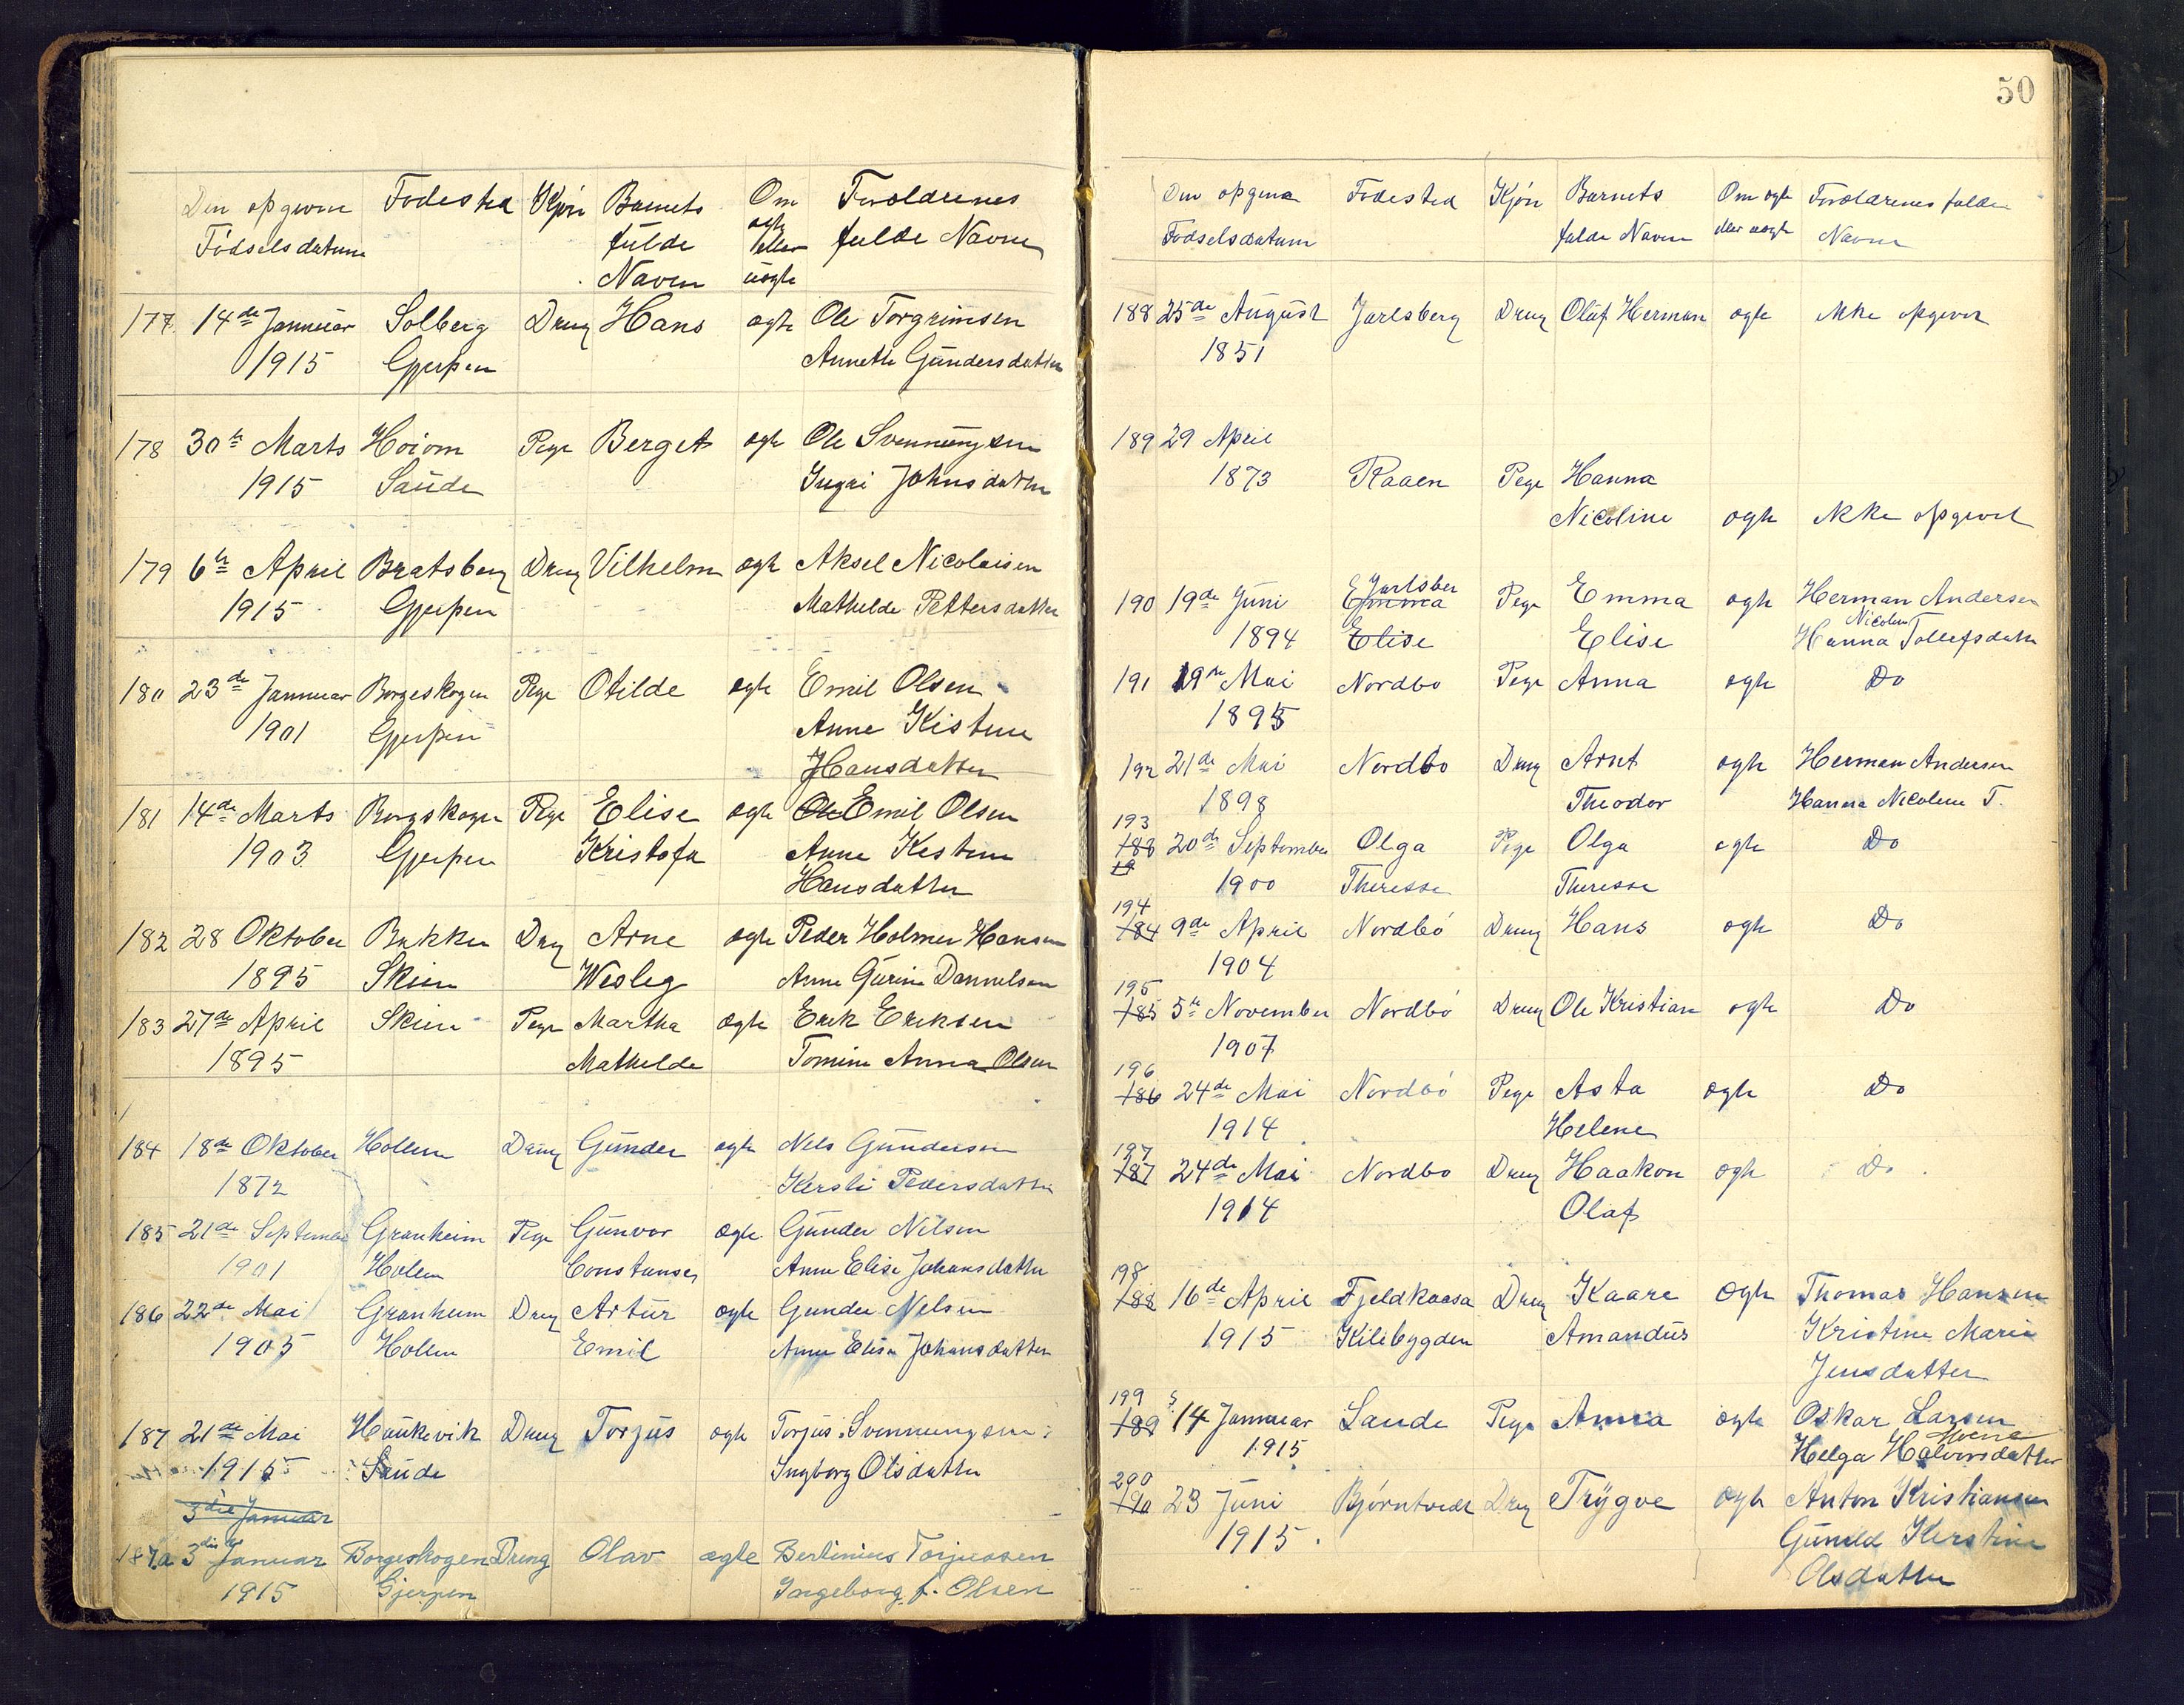 Den opgivne Fødested Kjøn Barnets Om Forældrenes
Fødselsdatum fulde ægte eller fulde Navne
Navn uægte
177 14de Januar Solberg Dreng Hans ægte Ole Torgrimsen
1915 Gjerpen Annethe Gundersdatter
178 30te Marts Hoiom Pige Berget ægte Ole Svenningsen
1915 Saude Ingri Johnsdatter
179 6te April Bratsberg Dreng Vilhelm ægte Aksel Nicolaisen
1915 Gjerpen Mathilde Pettersdatter
180 23de Januar Borgeskogen Pige Otilde ægte Emil Olsen
1901 Gjerpen Anne Kistine
Hansdatter
181 14de Marts Borgskogen Pige Elise ægte Ole Emil Olsen
1903 Gjerpen Kristofa Anne Kistine
Hansdatter
182 28 Oktober Bakken Dreng Arne ægte Peder Holmer Hansen
1895 Skien Wesleg Anne Gurine Dannelsen
183 27de April Skien Pige Martha ægte Erik Eriksen
1895 Mathilde Tomine Anna Olsen
184 18de Oktober Hollen Dreng Gunder ægte Nels Gundersen
1872 Kersti Pedersdatter
185 21de September Granheim Pige Gunvor ægte Gunder Nilsen
1901 Hollen Constanse Anne Elise Johansdatter
186 22de Mai Granheim Dreng Artur ægte Gunder Nelsen
1905 Hollen Emil Anne Elise Johansdatter
187 21de Mai Haukevik Dreng Torjus ægte Torjus Svennungsen
1915 Saude Ingborg Olsdatter
3die Januar
187a 3die Januar Borgeskogen Dreng Olav ægte Bertinius Torjussen
1915 Gjerpen Ingeborg f. Olsen
50
Den opgivne Fødested Kjøn Barnets Om ægte Forældrenes fulde
Fødselsdatum fulde Navn eller uægte Navne
188 25de August Jarlsberg Dreng Oluf Herman ægte ikke opgivet
1851
189 29 April
1873 Raaen Pige Hanna
Nicoline ægte ikke opgivet
Jarlsber
190 19de Juni Emma Pige Emma ægte Herman Andersen
Nicoline
1894 Elise Elise Hanna Tollefsdatter
191 19de Mai Nordbø Pige Anna ægte Do
1895
192 21de Mai Nordbo Dreng Arnt ægte Herman Andersen
1898 Theodor Hanna Nicoline T.
193
188 20de September Olga Pige Olga ægte Do
19
1900 Theresse Theresse
194
184 9de April Nordbø Dreng Hans ægte Do
1904
195
185 5te November Nordbø Dreng Ole Kristian ægte Do
1907
196
186 24de Mai Nordbø Pige Asta ægte Do
1914 Helene
197
187 24de Mai Nordbo Dreng Haakon ægte Do
1914 Olaf
198
188 16de April Fjeldkaasa Dreng Kaare ægte Thomas Hansen
1915 Kilebygden Amandus Kristine Marie
Jensdatter
199
189 14 Januar Saude Pige Anna ægte Oskar Larsen
1915 Helga Halvorsdatter
200
190 23 Juni Bjørntvedt Dreng Trygve ægte Anton Kristiansen
1915. Gunild Kerstine
Olsdatter